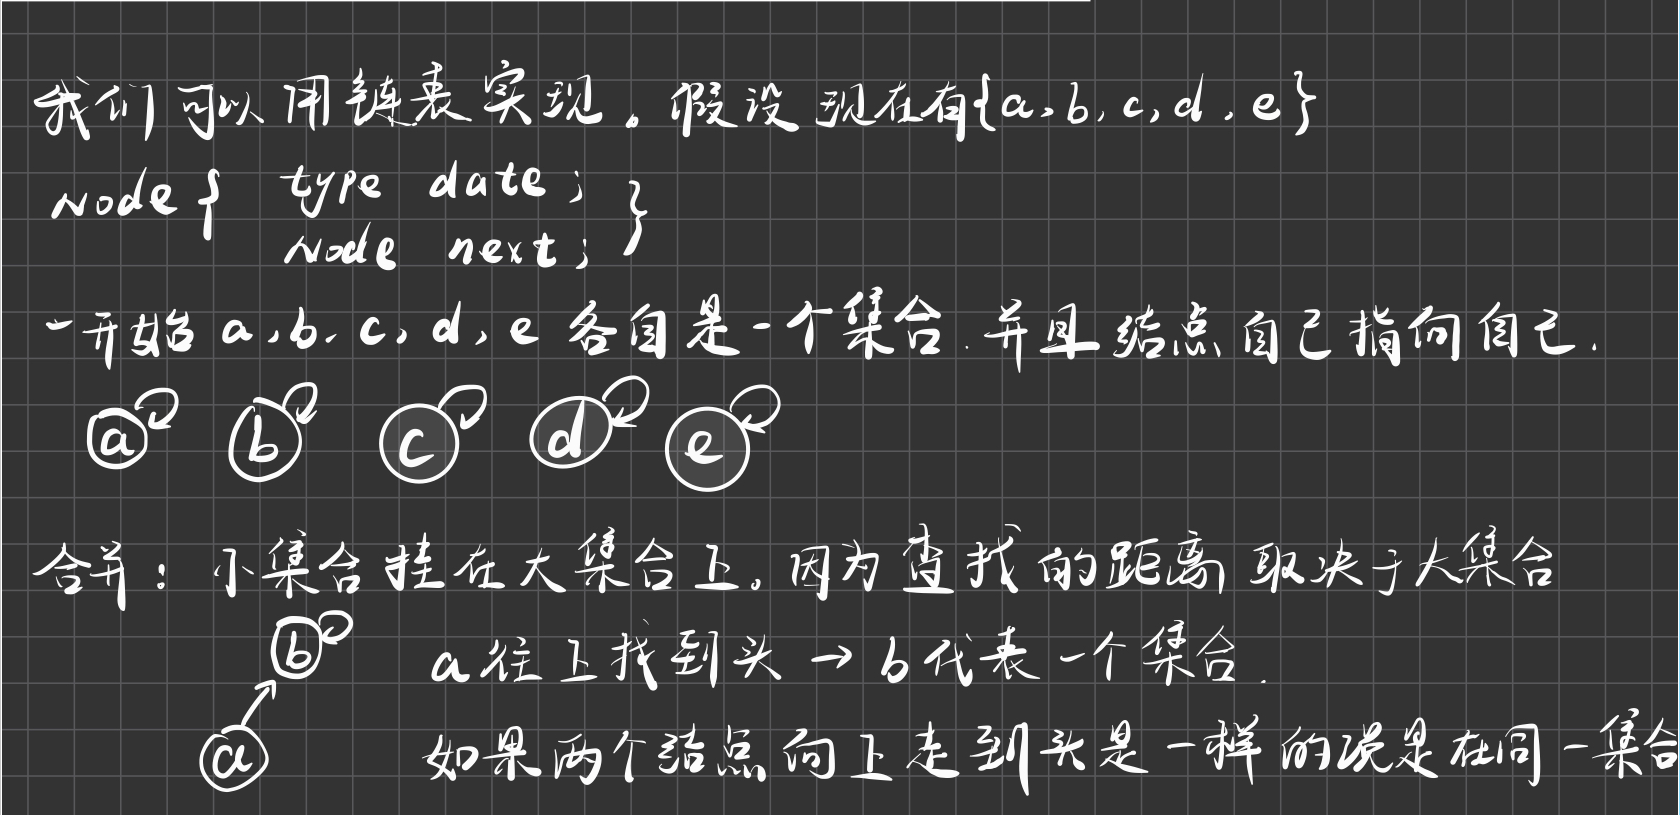 我们可以用链表实现。假设现在有{a,b,c,d,e}
Node { type date;
Node next; }
一开始a,b,c,d,e各自是一个集合.并且结点自己指向自己.
a b c d e
合并：小集合挂在大集合上。因为查找的距离取决于大集合
b
a往上找到头→b代表一个集合.
a
如果两个结点向上走到头是一样的说是在同一集合